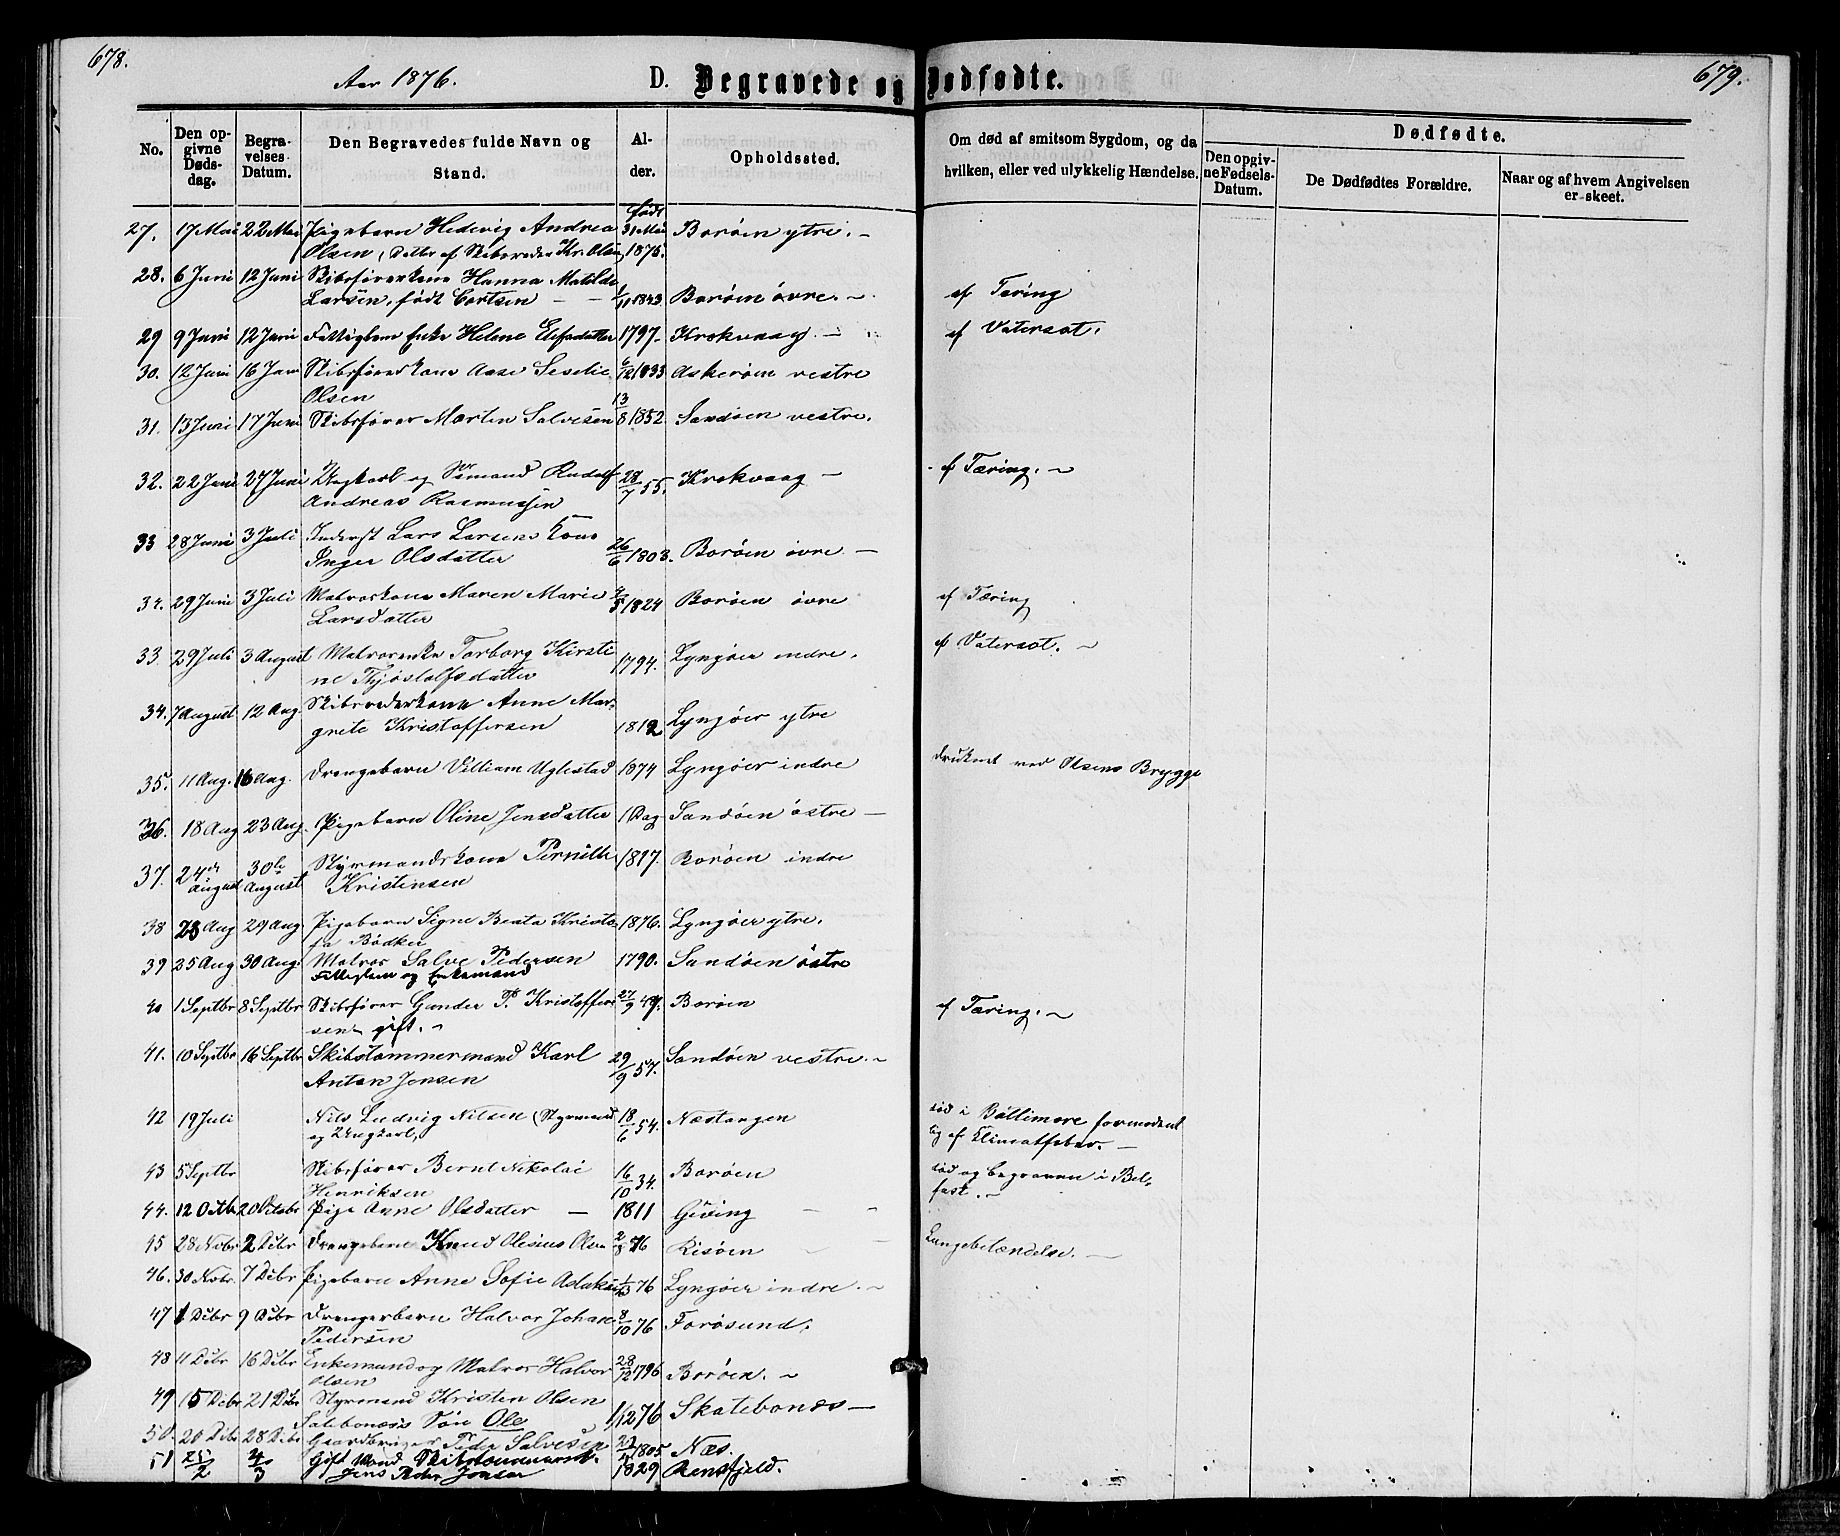 678.
Aar 1876.
D. Begravede og Dødfødte.
679.
No.
Den opgivne Dødsdag.
Begravelses Datum.
Den Begravedes fulde Navn og Stand.
Alder.
Opholdssted.
Om død af smitsom Sygdom, og da hvilken, eller ved ulykkelig Hændelse.
Dødfødte.
Den opgivne Fødsels-Datum.
De Dødfødtes Forældre.
Naar og af hvem Angivelsen er skeet.
født
27. 17 Mai 22 Mai Pigebarn Hedevig Andrea 31 Mai Borøen ytre.
Olsen, Datter af Skibsreder Kr. Olsen, 1875.
28. 6 Juni 12 Juni Skibsførerkone Hanna Matilde
Larsen, født Cortsen 1/11 1843. Borøen øvre. af Tæring
29 9 Juni 12 Juni Fattiglem Enke Helene Elefsdatter 1797 Krokvaag af Vatersot.
30. 12 Juni 16 Juni Skibsførerkone Aase Seselie 6/12 1833 Askerøen vestre
Olsen
31. 13 Juni 17 Juni Skibsfører Morten Salvesen 13/8 1852. Sandøen vestre.
32. 22 Juni 27 Juni Ungkarl og Sømand Rudolf 28/7 55. Krokvaag af Tæring.
Andreas Rasmussen
33 28 Juni 3 Juli Inderst Lars Larsens Kone
Inger Olsdatter 26/6 1803. Borøen øvre
34. 29 Juni 3 Juli Matroskone Maren Marie 4/5 1824 Borøen øvre af Tæring
Larsdatter
33 29 Juli 3 August Matrosenke Torborg Kirsti
ne Thjøstolfsdatter 1794. Lyngøer indre. af Vatersot.
34. 7 August 12 Aug. Skibsrederkone Anne Mar-
grete Kristoffersen 1812 Lyngøer ytre
35. 11 Aug. 16 Aug. Drengebarn Villiam Uglestad 1874 Lyngøer indre druknet ved Olsens Brygge
36. 18 Aug 23 Aug. Pigebarn Oline Jensdatter 1 Dag Sandøen østre
37. 24de August 30te August Styrmandskone Pernille 1817. Borøen indre
Kristensen
38 23 Aug 29 Aug. Pigebarn Signe Beata Kristo- 1876. Lyngøer ytre.
fa Bødker
39 25 Aug 30 Aug. Matros Salve Pedersen 1790. Sandøen østre
Fattiglem og Enkemand
40 1 Septbr 8 Septbr Skibsfører Gunder P. Kristoffer- 27/9 49. Borøen af Tæring.
sen gift.
41. 10 Septbr 16 Septbr Skibstømmermand Karl 29/9 57. Sandøen vestre.
Anton Jensen
42 19 Juli Nils Ludvig Nilsen (Styrmand 18/6 54. Næstangen død i Baltimore formodent
og Ungkarl, lig af Klimatfeber.
43 5 Septbr Skibsfører Bernt Nikolai 16/10 34. Borøen død og begraven i Bel-
Henriksen fast.
44. 12 Octbr 20 Octobr Pige Anne Olsdatter 1811 Gjeving
45 28 Novbr 2 Debr Drengebarn Knud Olesius Olsen 2/8 76 Risøen Lungebetændelse.
46. 30 Novbr. 7 Debr Pigebarn Anne Sofie 76 Lyngøer indre.
47 1 Debr 9 Debr Drengebarn Halvor Johan 8/10 76 Forøsund.
Pedersen
48 11 Debr 16 Debr Enkemand og Matros Halvor 28/12 1796 Borøen.
Olsen
49 15 Debr 21 Debr Styrmand Kristen Olsen
Søn Ole 1/12 76 Skatebonæs
50. 20 Debr 28 Debr Gaardbruger Peder Salvesen 1805 Næs.
51 25/2 4/3 Gift Mand Skibstømmermand. 1829 Rensfjeld.
Jens Peder Jensen